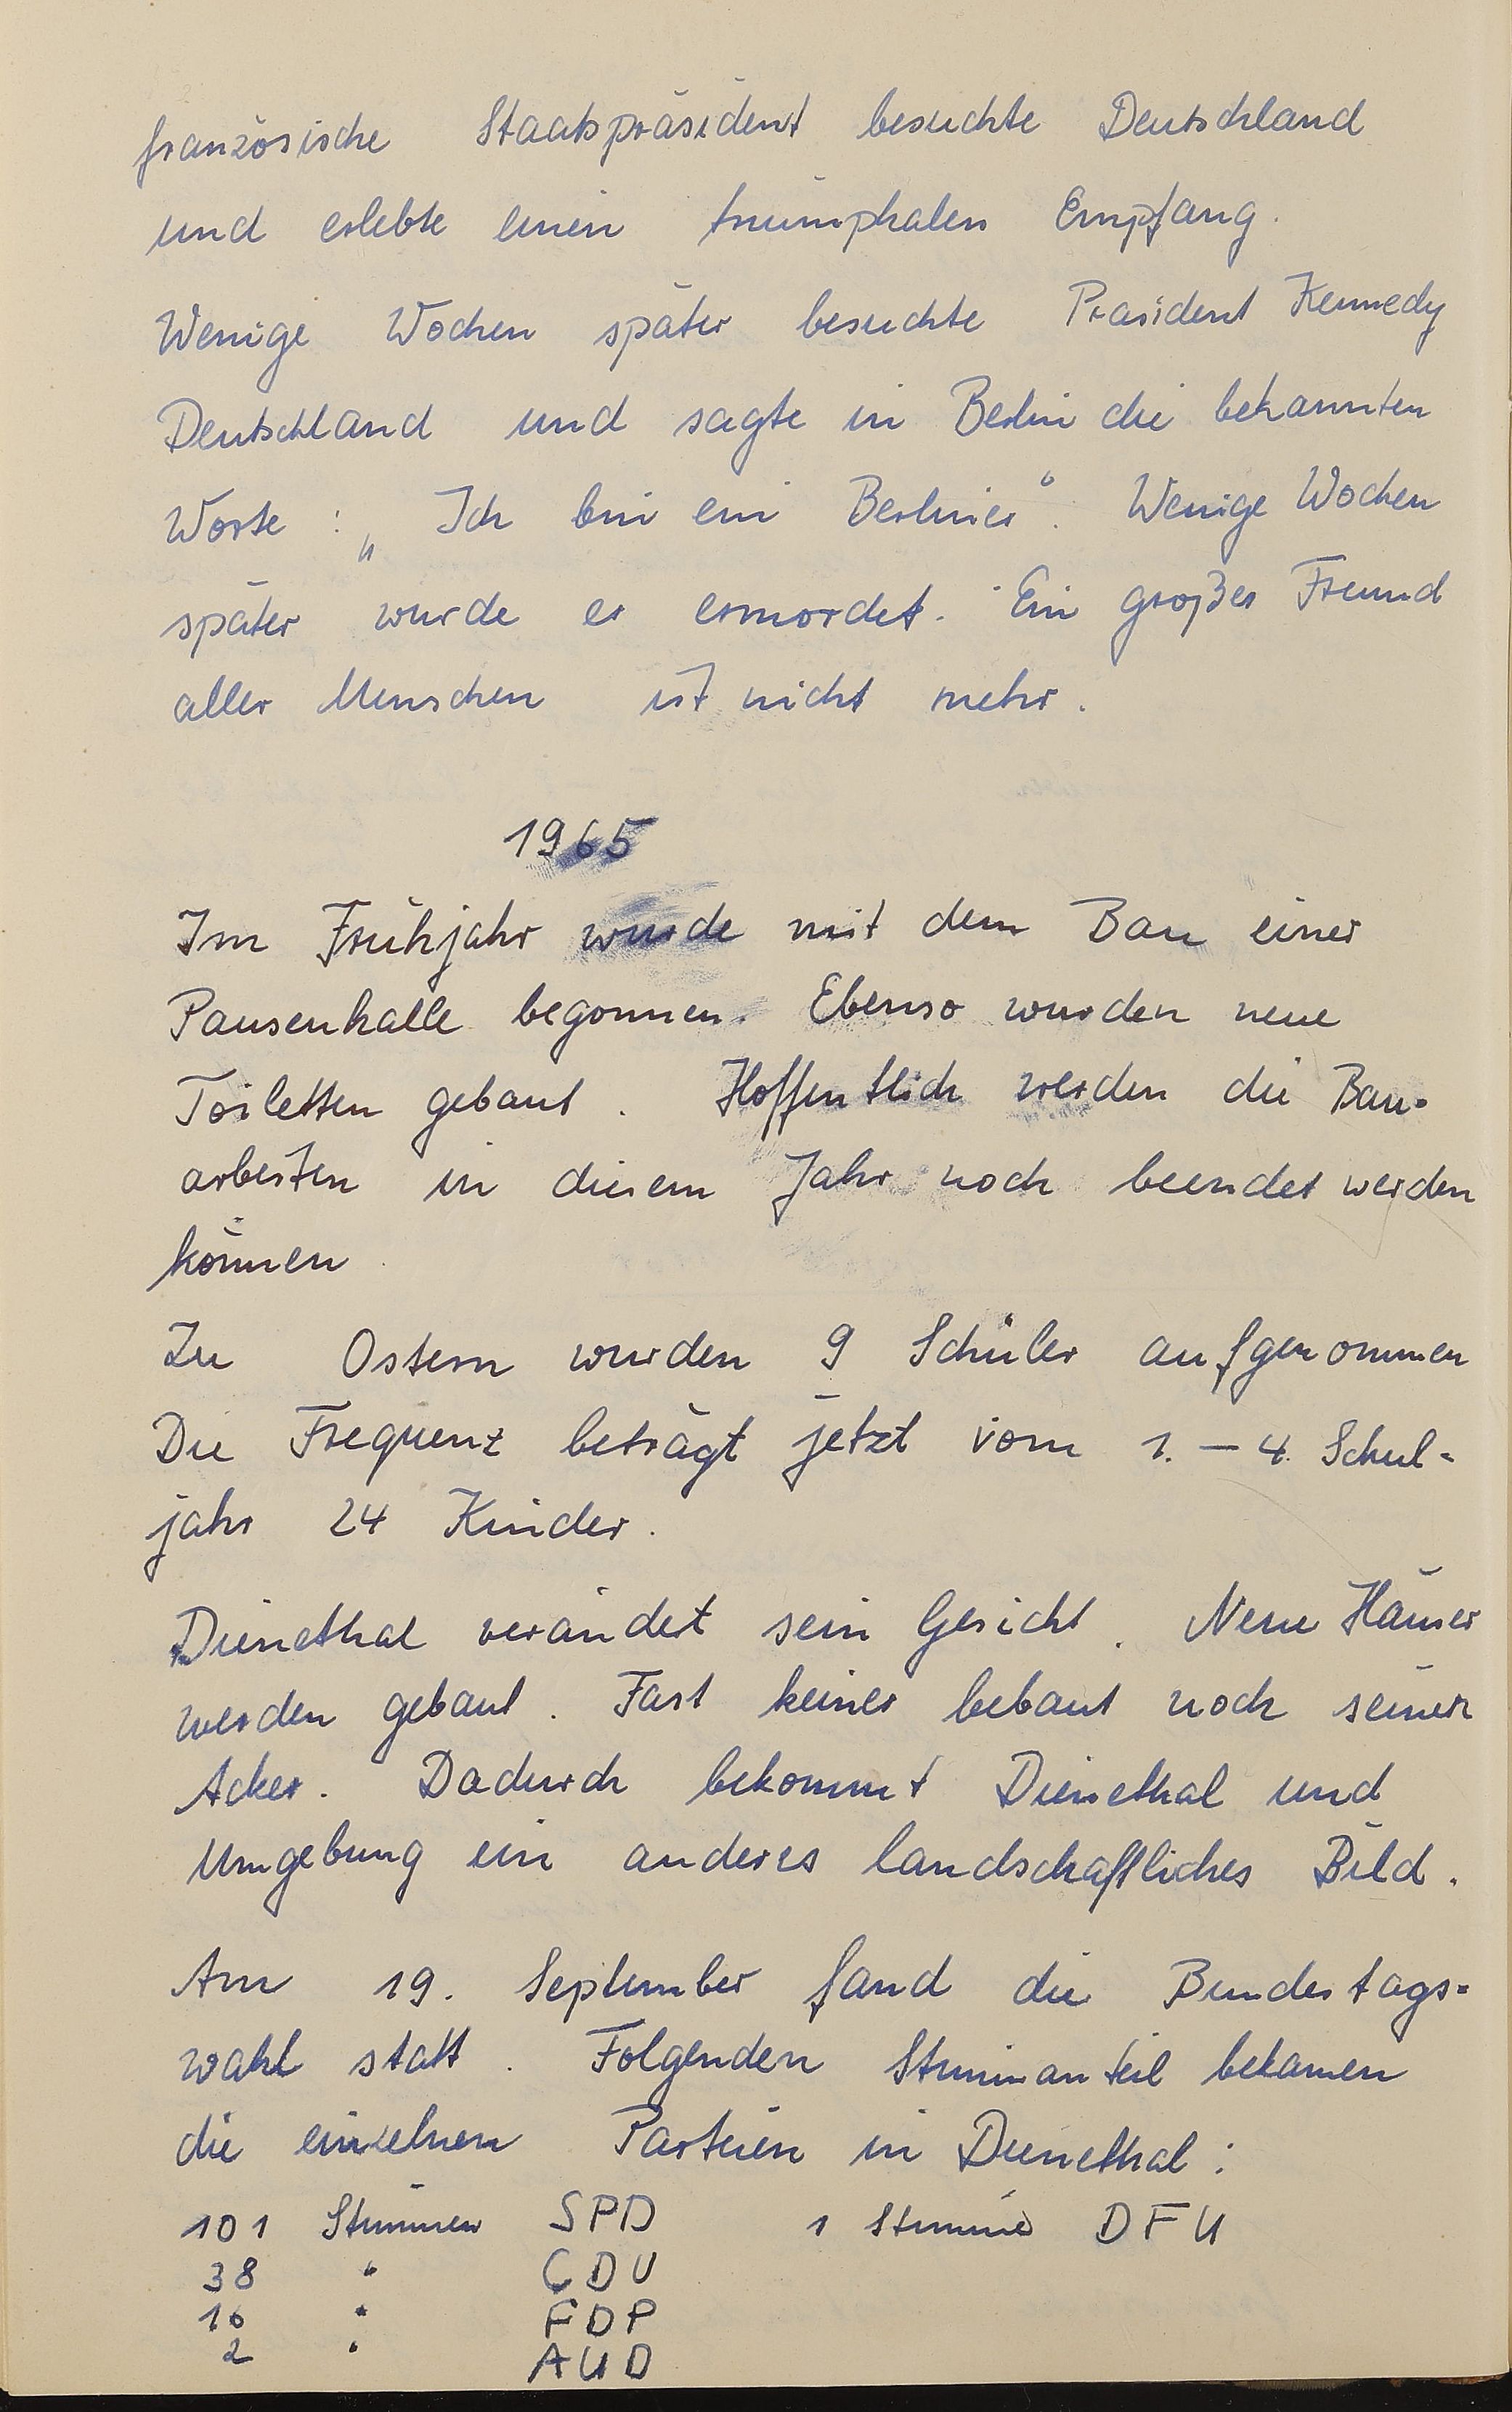 französische Staatspräsident besuchte Deutschland
und erlebte einen triumphalen Empfang.
Wenige Wochen später besuchte Präsident Kennedy
Deutschland und sagte in Berlin die bekannten
Worte : „Ich bin ein Berliner“. Wenige Wochen
später wurde er ermordet. Ein großer Freund
aller Menschen ist nicht mehr.
1965
Im Frühjahr wurde mit dem Bau einer
Pausenhalle begonnen. Ebenso wurden neue
Toiletten gebaut. Hoffentlich werden die Bau-
arbeiten in diesem Jahr noch beendet werden
können.
Zu Ostern wurden 9 Schüler aufgenommen
Die Frequenz beträgt jetzt vom 1. – 4. Schul-
jahr 24 Kinder.
Dienethal verändert sein Gesicht. Neue Häuser
werden gebaut. Fast keiner bebaut noch seinen
Acker. Dadurch bekommt Dienethal und
Umgebung ein anderes landschaftliches Bild.
Am 19. September fand die Bundestags=
wahl statt. Folgenden Stimmanteil bekamen
die einzelnen Parteien in Dienethal :
101 Stimmen SPD 1 Stimme DFU
38 " CDU
16 " FDP
2 " AUD